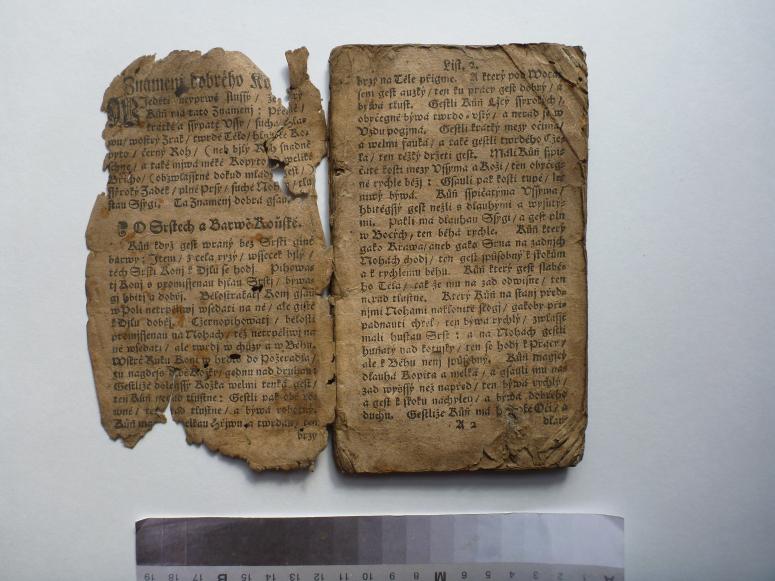 Znamenj dobrého Ko
MJeděti neyprwé slussy / že
Kůň má tato Znamenj: Přední /
krátké a sspyaté Vssy / suchá Hla-
wu / wostrý Zrak / twrdé Tělo /
pyto / černý Roh / (neb bjlý Roh snadně
a také mjwá měkké Kopyto / weliké
Břicho / (obzwlásstně dokud mladý gest /)
ssyroký Zadek / plné Prsy / suché Nohy / tlu-
stau Ssygi. Ta Znamenj dobrá gsau.
O Srstech a Barwě Koňské.
Kůň když gest wraný bez Srsti giné
barwy: Jtem / z cela ryzý / wssecek bjlý /
těch Srstj Konj k Djlu se hodj. Pihowa-
tj Konj s promjssenau bjlau Srstj / býwa-
gj hbitj a dobřj. Běloskakatj Konj gsau
w Poli netrpěliwj wsedati na ně / ale gistě
k Djlu dobřj. Czernopihowatj / bělostj
promjssenau na Nohách / též netrpěliwj na
ně wsedati / ale twrdj w chůzy a w Běhu.
Wstrč Ruku Koni w hrdlo do Požeradla /
tu nagdeš dwě Kožky / gednu nad druhau:
Gestliže doleyssý Kožka welmi tenká gest /
ten Kůň nerad tlustne: Gestli pak obě ro-
wné / ten rád tlustne / a býwá robotný.
Kůň magjcý welkau Hřjwu a twrdau / ten
brzy
List. 2.
brzy na Těle přigme. A který pod Woca-
sem gest auzký / ten ku prácy gest dobrý / a
býwá tlust. Gestli Kůň Lžcy ssyrokých /
obyčegně býwá twrdo-vstý / a nerad se w
Vzdu pogjmá. Gestli krátký mezy očima /
a welmi fauká / a také gestli twrdého Cze-
la / ten těžký držeti gest. Máli Kůň sspi-
čaté kosti mezy Vssyma a Koži / ten obyčeg-
ně rychle běžj: Gsauli pak kosti tupé / le-
niwý býwá. Kůň sspičatýma Vssyma /
hbitěgssý gest nežli s dlauhými a wyžutý-
mi. Pakli má dlauhau Ssygi / a gest pln
w Bocých / ten běhá rychle. Kůň který
gako Kráwa / aneb gako Srna na zadnjch
Nohách chodj / ten gest způsobný k skokům
a k rychlému běhu. Kůň který gest slabé-
ho Těla / tak že mu na zad odwisne / ten
nerad tlustne. Který Kůň na stánj před-
njmi Nohami nakloniw stogj / gakoby při-
padnauti chtěl / ten býwá rychlý / zwlásstě
máli huňatau Srst: a na Nohách gestli
huňatý nad kotnjky / ten se hodj k Prácy /
ale k Běhu není způsobný. Kůň magjcý
dlauhá Kopita a mělká / a gsauli mu na
zad wyšssý než napřed / ten býwá rychlý /
a gest k skoku nachylen / a býwá dobrého
duchu. Gestliže Kůň má hluboké Oči / a
A 2
dlau-